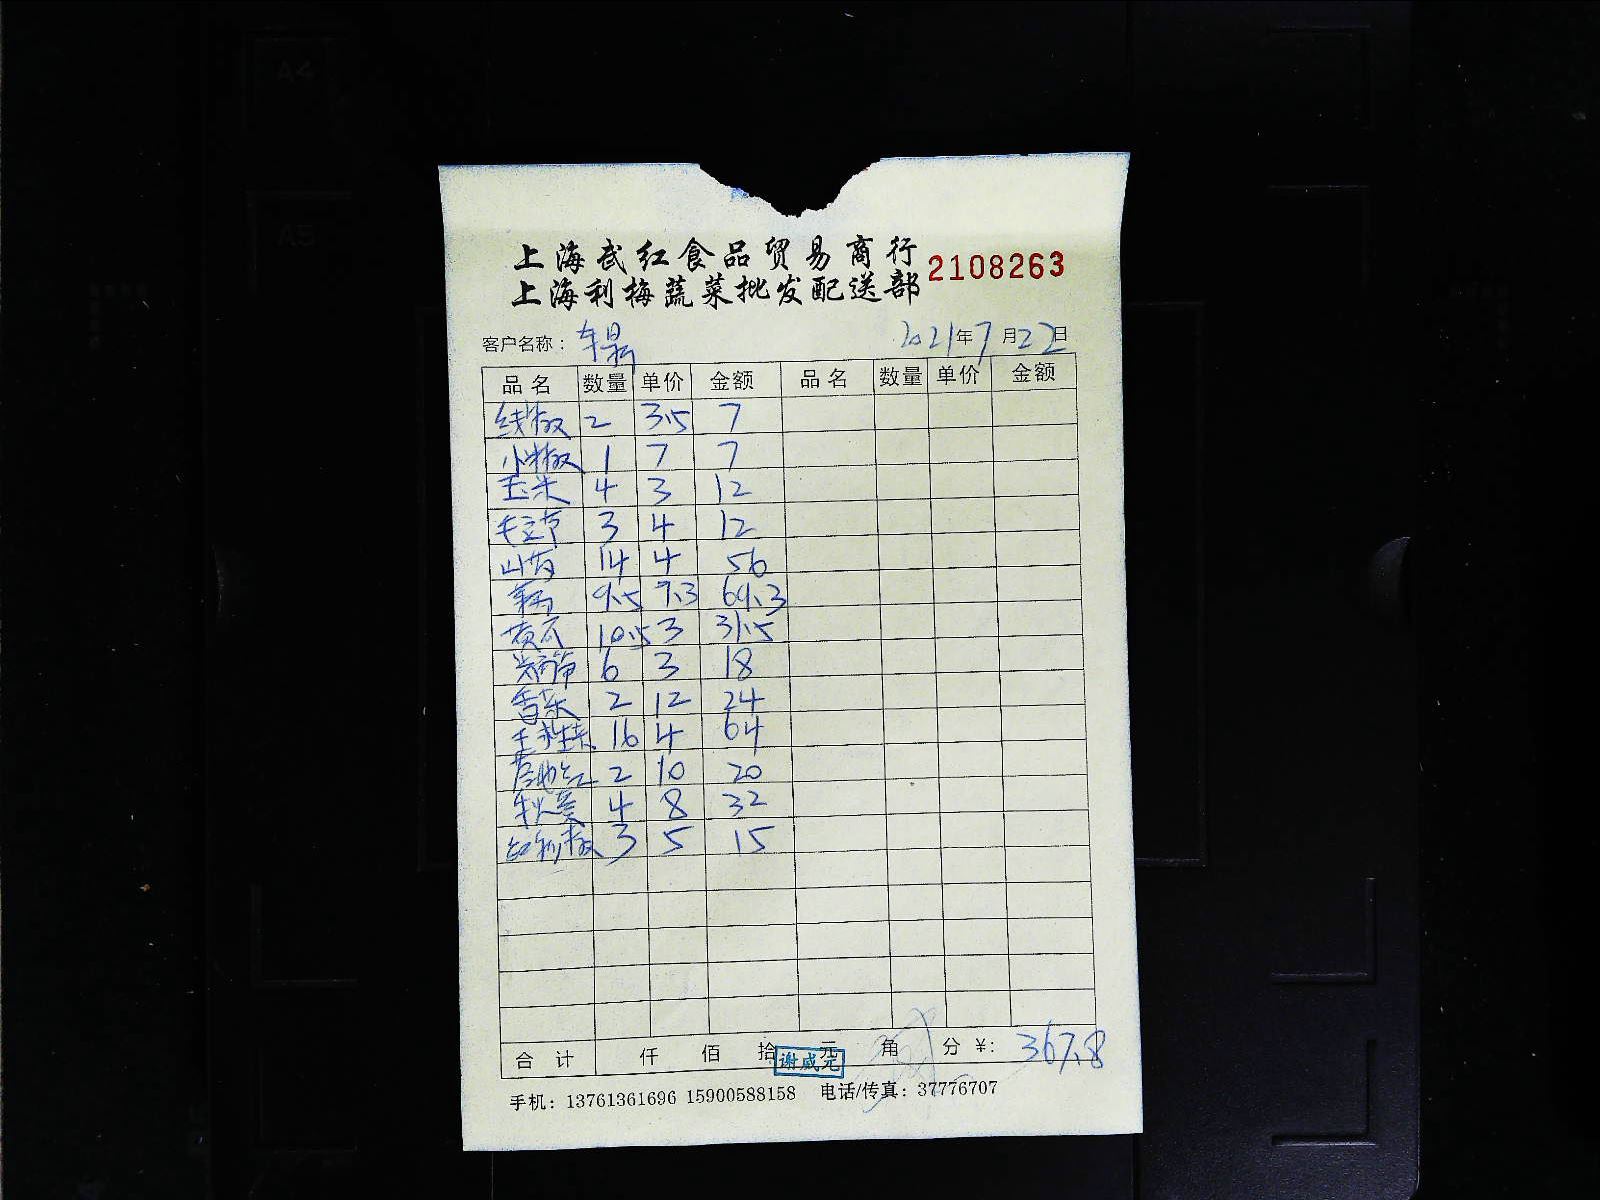 A4
A5
上海武红食品贸易商行
上海利梅蔬菜批发配送部
2108263
客户名称： 2021年7月22日
品名 数量 单价 金额 品名 数量 单价 金额
线椒 2 3.5 7
小米椒 1 7 7
玉米 4 3 12
毛豆节 3 4 12
山药 14 4 56
9.5 7.3 69.3
黄瓜 10.5 3 31.5
6 3 18
香菜 2 12 24
16 4 64
2 10 20
秋葵 4 8 32
红彩椒 3 5 15
合计 仟 佰 拾 元 角 分 ¥: 367.8
谢咸元
手机：13761361696 15900588158 电话/传真：37776707